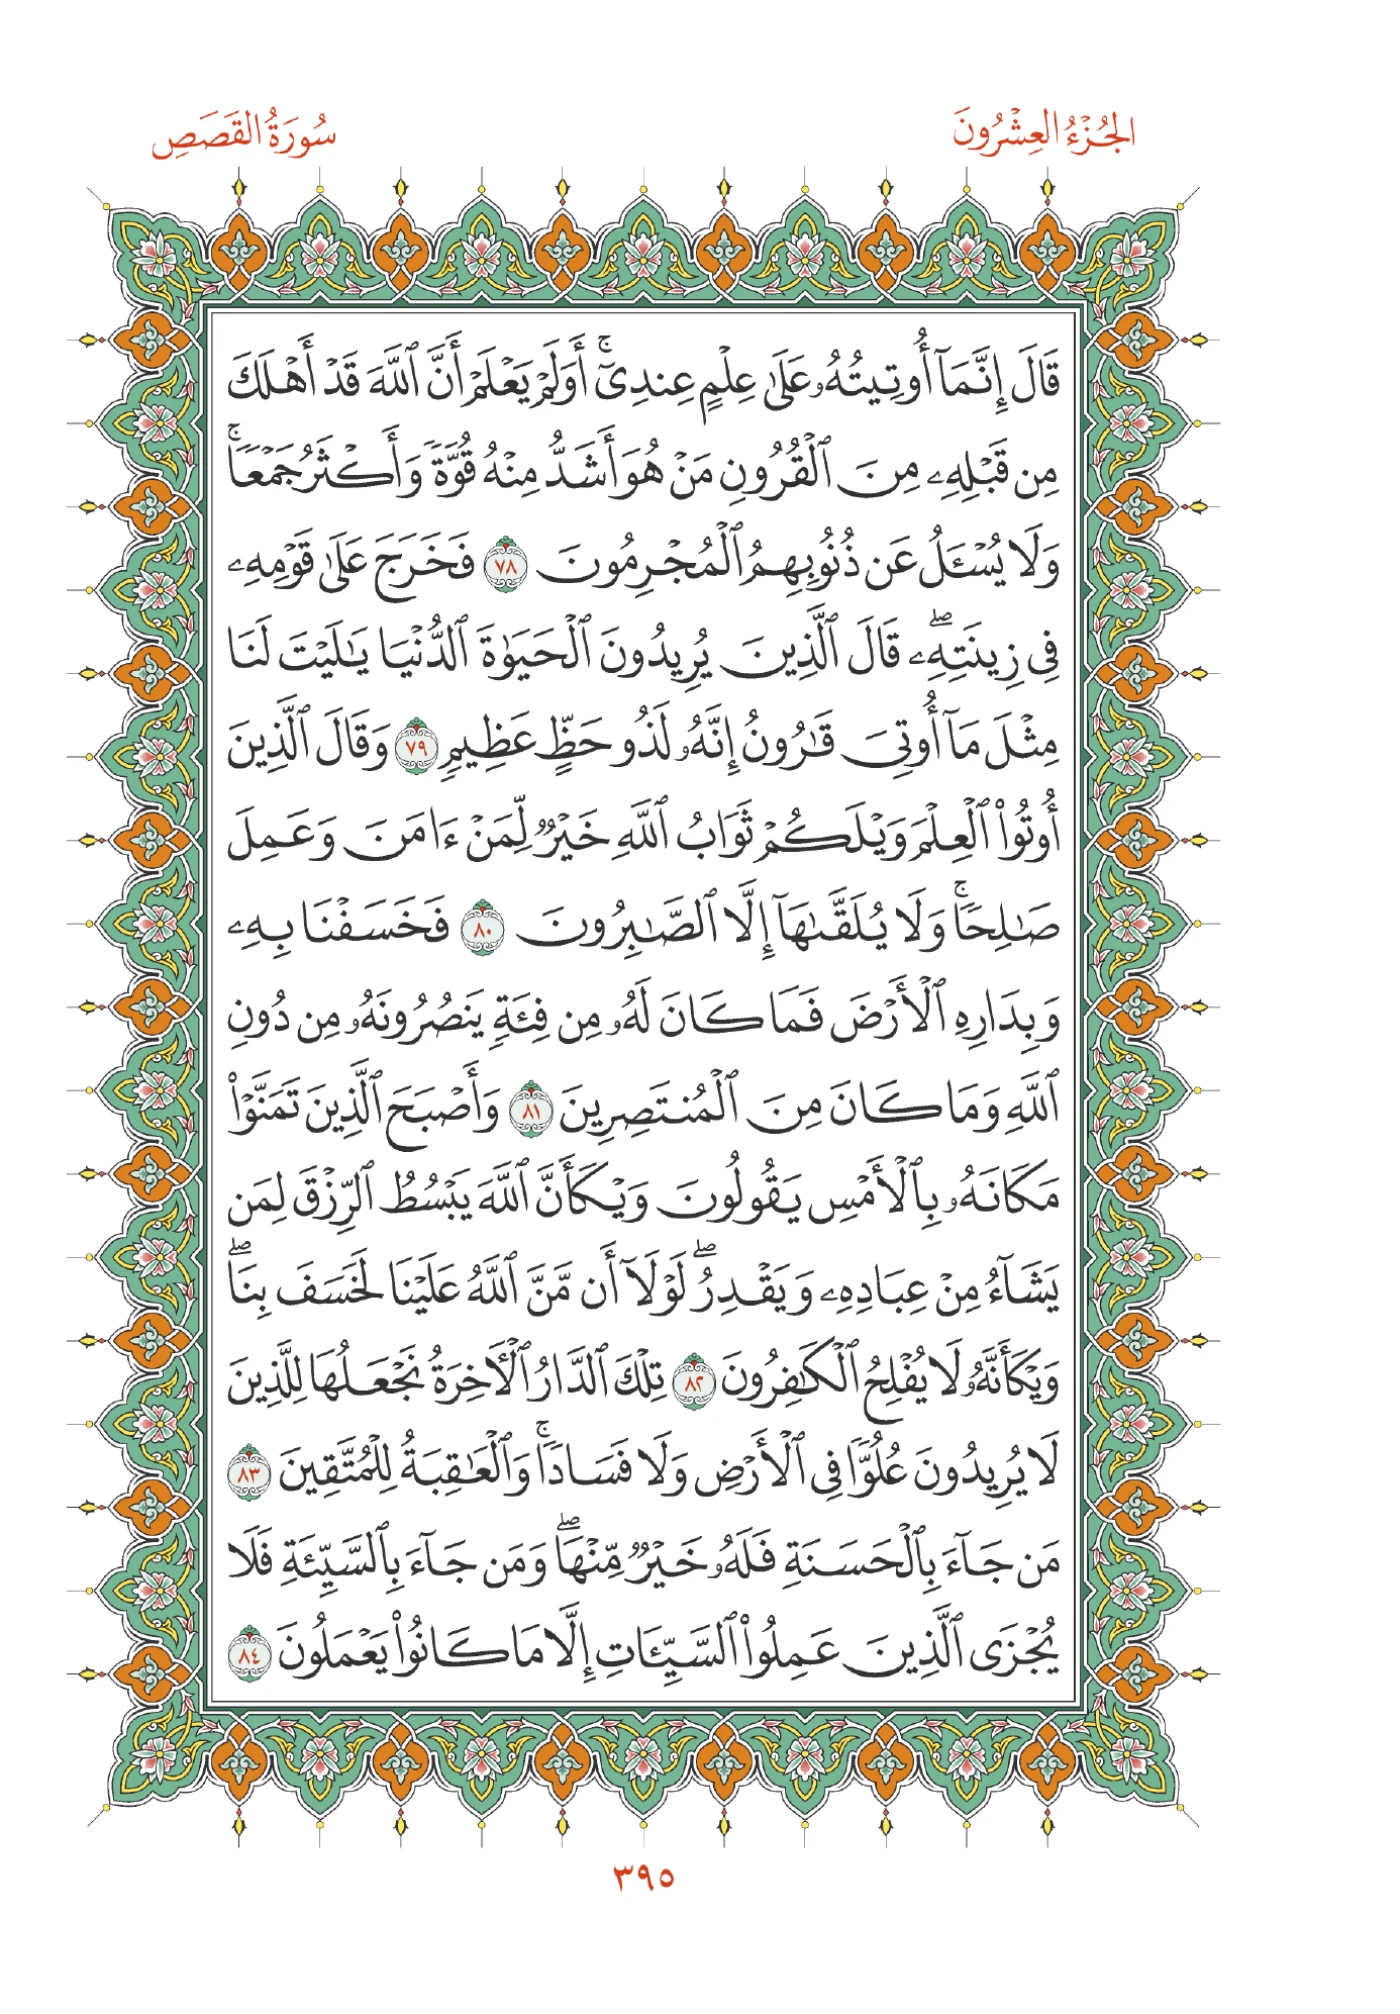 الجُزْءُ العِشْرُونَ
سُورَةُ القَصَصِ
قَالَ إِنَّمَآ أُوتِيتُهُۥ عَلَىٰ عِلْمٍ عِندِىٓۚ أَوَلَمْ يَعْلَمْ أَنَّ ٱللَّهَ قَدْ أَهْلَكَ
مِن قَبْلِهِۦ مِنَ ٱلْقُرُونِ مَنْ هُوَ أَشَدُّ مِنْهُ قُوَّةً وَأَكْثَرُ جَمْعًاۚ
وَلَا يُسْـَٔلُ عَن ذُنُوبِهِمُ ٱلْمُجْرِمُونَ ٧٨ فَخَرَجَ عَلَىٰ قَوْمِهِۦ
فِى زِينَتِهِۦۖ قَالَ ٱلَّذِينَ يُرِيدُونَ ٱلْحَيَوٰةَ ٱلدُّنْيَا يَـٰلَيْتَ لَنَا
مِثْلَ مَآ أُوتِىَ قَـٰرُونُ إِنَّهُۥ لَذُو حَظٍّ عَظِيمٍ ٧٩ وَقَالَ ٱلَّذِينَ
أُوتُوا۟ ٱلْعِلْمَ وَيْلَكُمْ ثَوَابُ ٱللَّهِ خَيْرٌ لِّمَنْ ءَامَنَ وَعَمِلَ
صَـٰلِحًاۚ وَلَا يُلَقَّىٰهَآ إِلَّا ٱلصَّـٰبِرُونَ ٨٠ فَخَسَفْنَا بِهِۦ
وَبِدَارِهِ ٱلْأَرْضَ فَمَا كَانَ لَهُۥ مِن فِئَةٍ يَنصُرُونَهُۥ مِن دُونِ
ٱللَّهِ وَمَا كَانَ مِنَ ٱلْمُنتَصِرِينَ ٨١ وَأَصْبَحَ ٱلَّذِينَ تَمَنَّوْا۟
مَكَانَهُۥ بِٱلْأَمْسِ يَقُولُونَ وَيْكَأَنَّ ٱللَّهَ يَبْسُطُ ٱلرِّزْقَ لِمَن
يَشَآءُ مِنْ عِبَادِهِۦ وَيَقْدِرُۖ لَوْلَآ أَن مَّنَّ ٱللَّهُ عَلَيْنَا لَخَسَفَ بِنَاۖ
وَيْكَأَنَّهُۥ لَا يُفْلِحُ ٱلْكَـٰفِرُونَ ٨٢ تِلْكَ ٱلدَّارُ ٱلْـَٔاخِرَةُ نَجْعَلُهَا لِلَّذِينَ
لَا يُرِيدُونَ عُلُوًّا فِى ٱلْأَرْضِ وَلَا فَسَادًاۚ وَٱلْعَـٰقِبَةُ لِلْمُتَّقِينَ ٨٣
مَن جَآءَ بِٱلْحَسَنَةِ فَلَهُۥ خَيْرٌ مِّنْهَاۖ وَمَن جَآءَ بِٱلسَّيِّئَةِ فَلَا
يُجْزَى ٱلَّذِينَ عَمِلُوا۟ ٱلسَّيِّـَٔاتِ إِلَّا مَا كَانُوا۟ يَعْمَلُونَ ٨٤
٣٩٥